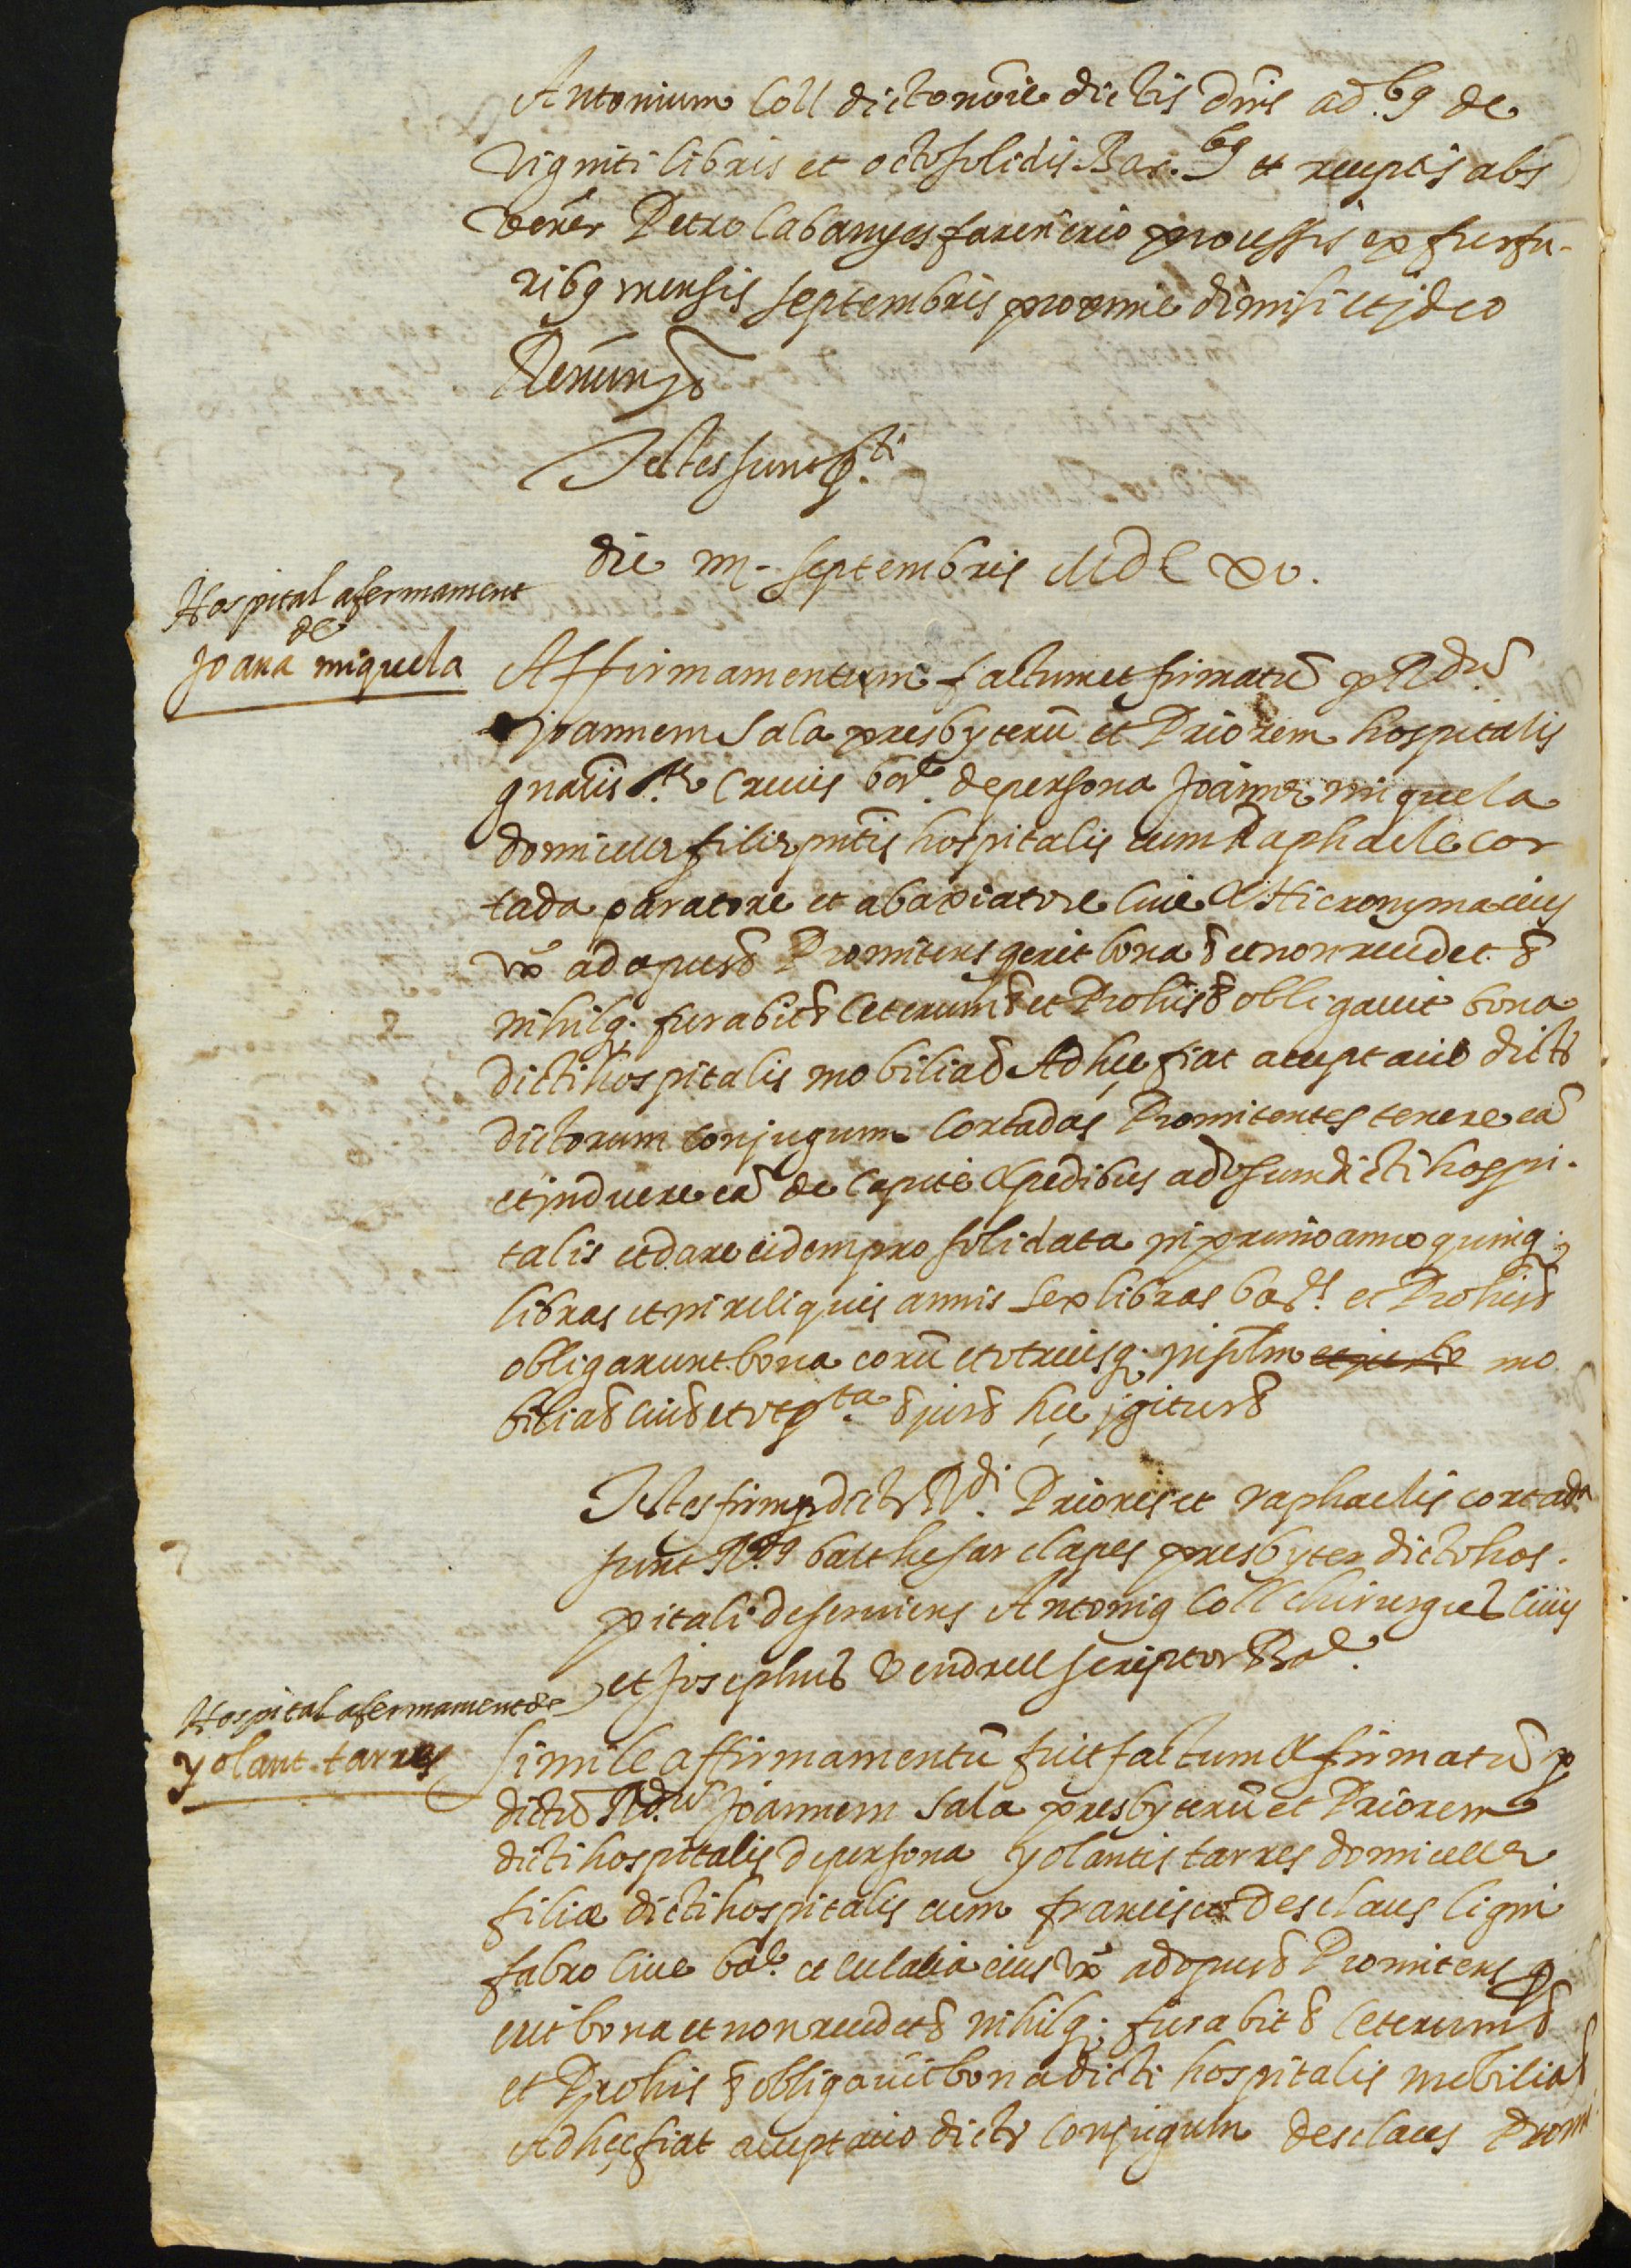 Antonium Coll dicto nõie dictis dñis ad.bꝯ de
vigniti libris et octo solidis Bar.bꝯ et receptis abs
vener Petro Cabanyes farinerio processis ex furfu-
ribꝯ mensis septembris proxime dimisi et jdeo
Renun
Testes sunt p.ti
die iiii. septembris MdLxv.
Hospital afermament
de
Joana miquela
Affirmamentum factum et firmatũ p R.dũ
joannem Sala presbyterũ et Priorem hospitalis
gñalis S.te Crucis bar.e de persona Joannæ miquela
domicellæ filiæ pñtis hospitalis cum Raphaele cor
tada paratore et abaxiatore cive & Hieronyma eius
vx ad opus & Promitens q erit bona & et non recedet &
nihilq. furabit & Ceterum & et Pro his & obligavit bona
dicti hospitalis mobilia & Ad hęc fiat acceptatio dict
dictorum conjugum Cortadas Promitentes tenere eã
et jnduere eã de capite & pedibus ad vsum dicti hospi-
talis et dare eidem pro solidata in primo anno quinq.
libras et in reliquis annis sex libras bar. et Pro his &
obligarunt bona eorũ et vtriusq. insolm mo
bilia & cum & et vt p.ta & jur & hęc jgitur &
Testes firmę dict R.di Prioris et raphaelis cortada
sunt R.dꝯ balthesar clapes presbyter dicto hos-
pitali deserviens Antoniꝯ Coll chirurgus civis
et Josephus Vendrell scriptor Bar.e
Hospital afermament de
yolant tarres
Simile affirmamentũ fuit factum & firmatũ p
dictũ R.dũ Joannem Sala presbyterũ et Priorem
dicti hospitalis de persona yolantis tarres domicellæ
filiæ dicti hospitalis cum francisco Desclaus ligni
fabro cive bar.e et eulalia eius vx ad opus & Promitens q
erit bona et non recedet & nihilq. furabit & Ceterum &
et Pro his & obligavit bona dicti hospitalis mobilia &
Ad hęc fiat acceptatio dict conjugum desclaus Promi